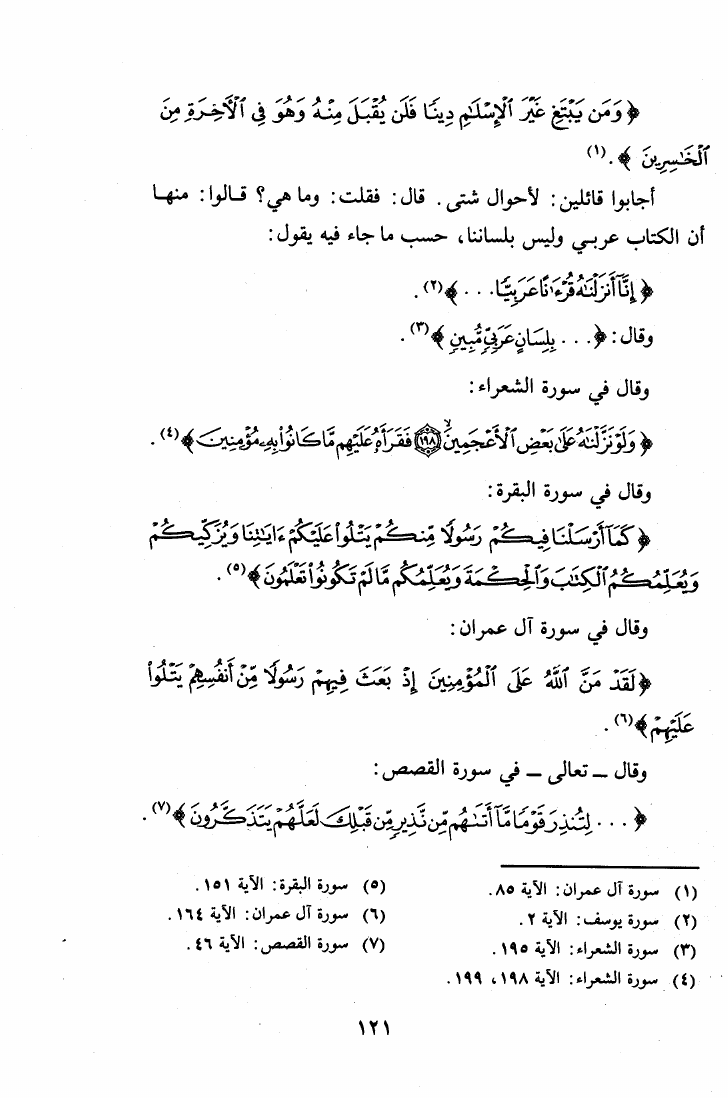 ﴿ وَمَن يَبْتَغِ غَيْرَ ٱلْإِسْلَٰمِ دِينًا فَلَن يُقْبَلَ مِنْهُ وَهُوَ فِى ٱلْأَخِرَةِ مِنَ
ٱلْخَٰسِرِينَ ﴾ .(١)
أجابوا قائلين: لأحوال شتى. قال: فقلت: وما هي؟ قالوا: منها
أن الكتاب عربي وليس بلساننا، حسب ما جاء فيه يقول:
﴿ إِنَّآ أَنزَلْنَٰهُ قُرْءَٰنًا عَرَبِيًّا . . . ﴾ (٢) .
وقال: ﴿ . . . بِلِسَانٍ عَرَبِىٍّ مُّبِينٍ ﴾ (٣) .
وقال في سورة الشعراء:
﴿ وَلَوْ نَزَّلْنَٰهُ عَلَىٰ بَعْضِ ٱلْأَعْجَمِينَ ١٩٨ فَقَرَأَهُۥ عَلَيْهِم مَّا كَانُوا۟ بِهِۦ مُؤْمِنِينَ ﴾ (٤) .
وقال في سورة البقرة:
﴿ كَمَآ أَرْسَلْنَا فِيكُمْ رَسُولًا مِّنكُمْ يَتْلُوا۟ عَلَيْكُمْ ءَايَٰتِنَا وَيُزَكِّيكُمْ
وَيُعَلِّمُكُمُ ٱلْكِتَٰبَ وَٱلْحِكْمَةَ وَيُعَلِّمُكُم مَّا لَمْ تَكُونُوا۟ تَعْلَمُونَ ﴾ (٥) .
وقال في سورة آل عمران:
﴿ لَقَدْ مَنَّ ٱللَّهُ عَلَى ٱلْمُؤْمِنِينَ إِذْ بَعَثَ فِيهِمْ رَسُولًا مِّنْ أَنفُسِهِمْ يَتْلُوا۟
عَلَيْهِمْ ﴾ (٦) .
وقال ــ تعالى ــ في سورة القصص:
﴿ . . . لِتُنذِرَ قَوْمًا مَّآ أَتَىٰهُم مِّن نَّذِيرٍ مِّن قَبْلِكَ لَعَلَّهُمْ يَتَذَكَّرُونَ ﴾ (٧) .
(١) سورة آل عمران: الآية ٨٥.
(٢) سورة يوسف: الآية ٢.
(٣) سورة الشعراء: الآية ١٩٥.
(٤) سورة الشعراء: الآية ١٩٨، ١٩٩.
(٥) سورة البقرة: الآية ١٥١.
(٦) سورة آل عمران: الآية ١٦٤.
(٧) سورة القصص: الآية ٤٦.
١٢١